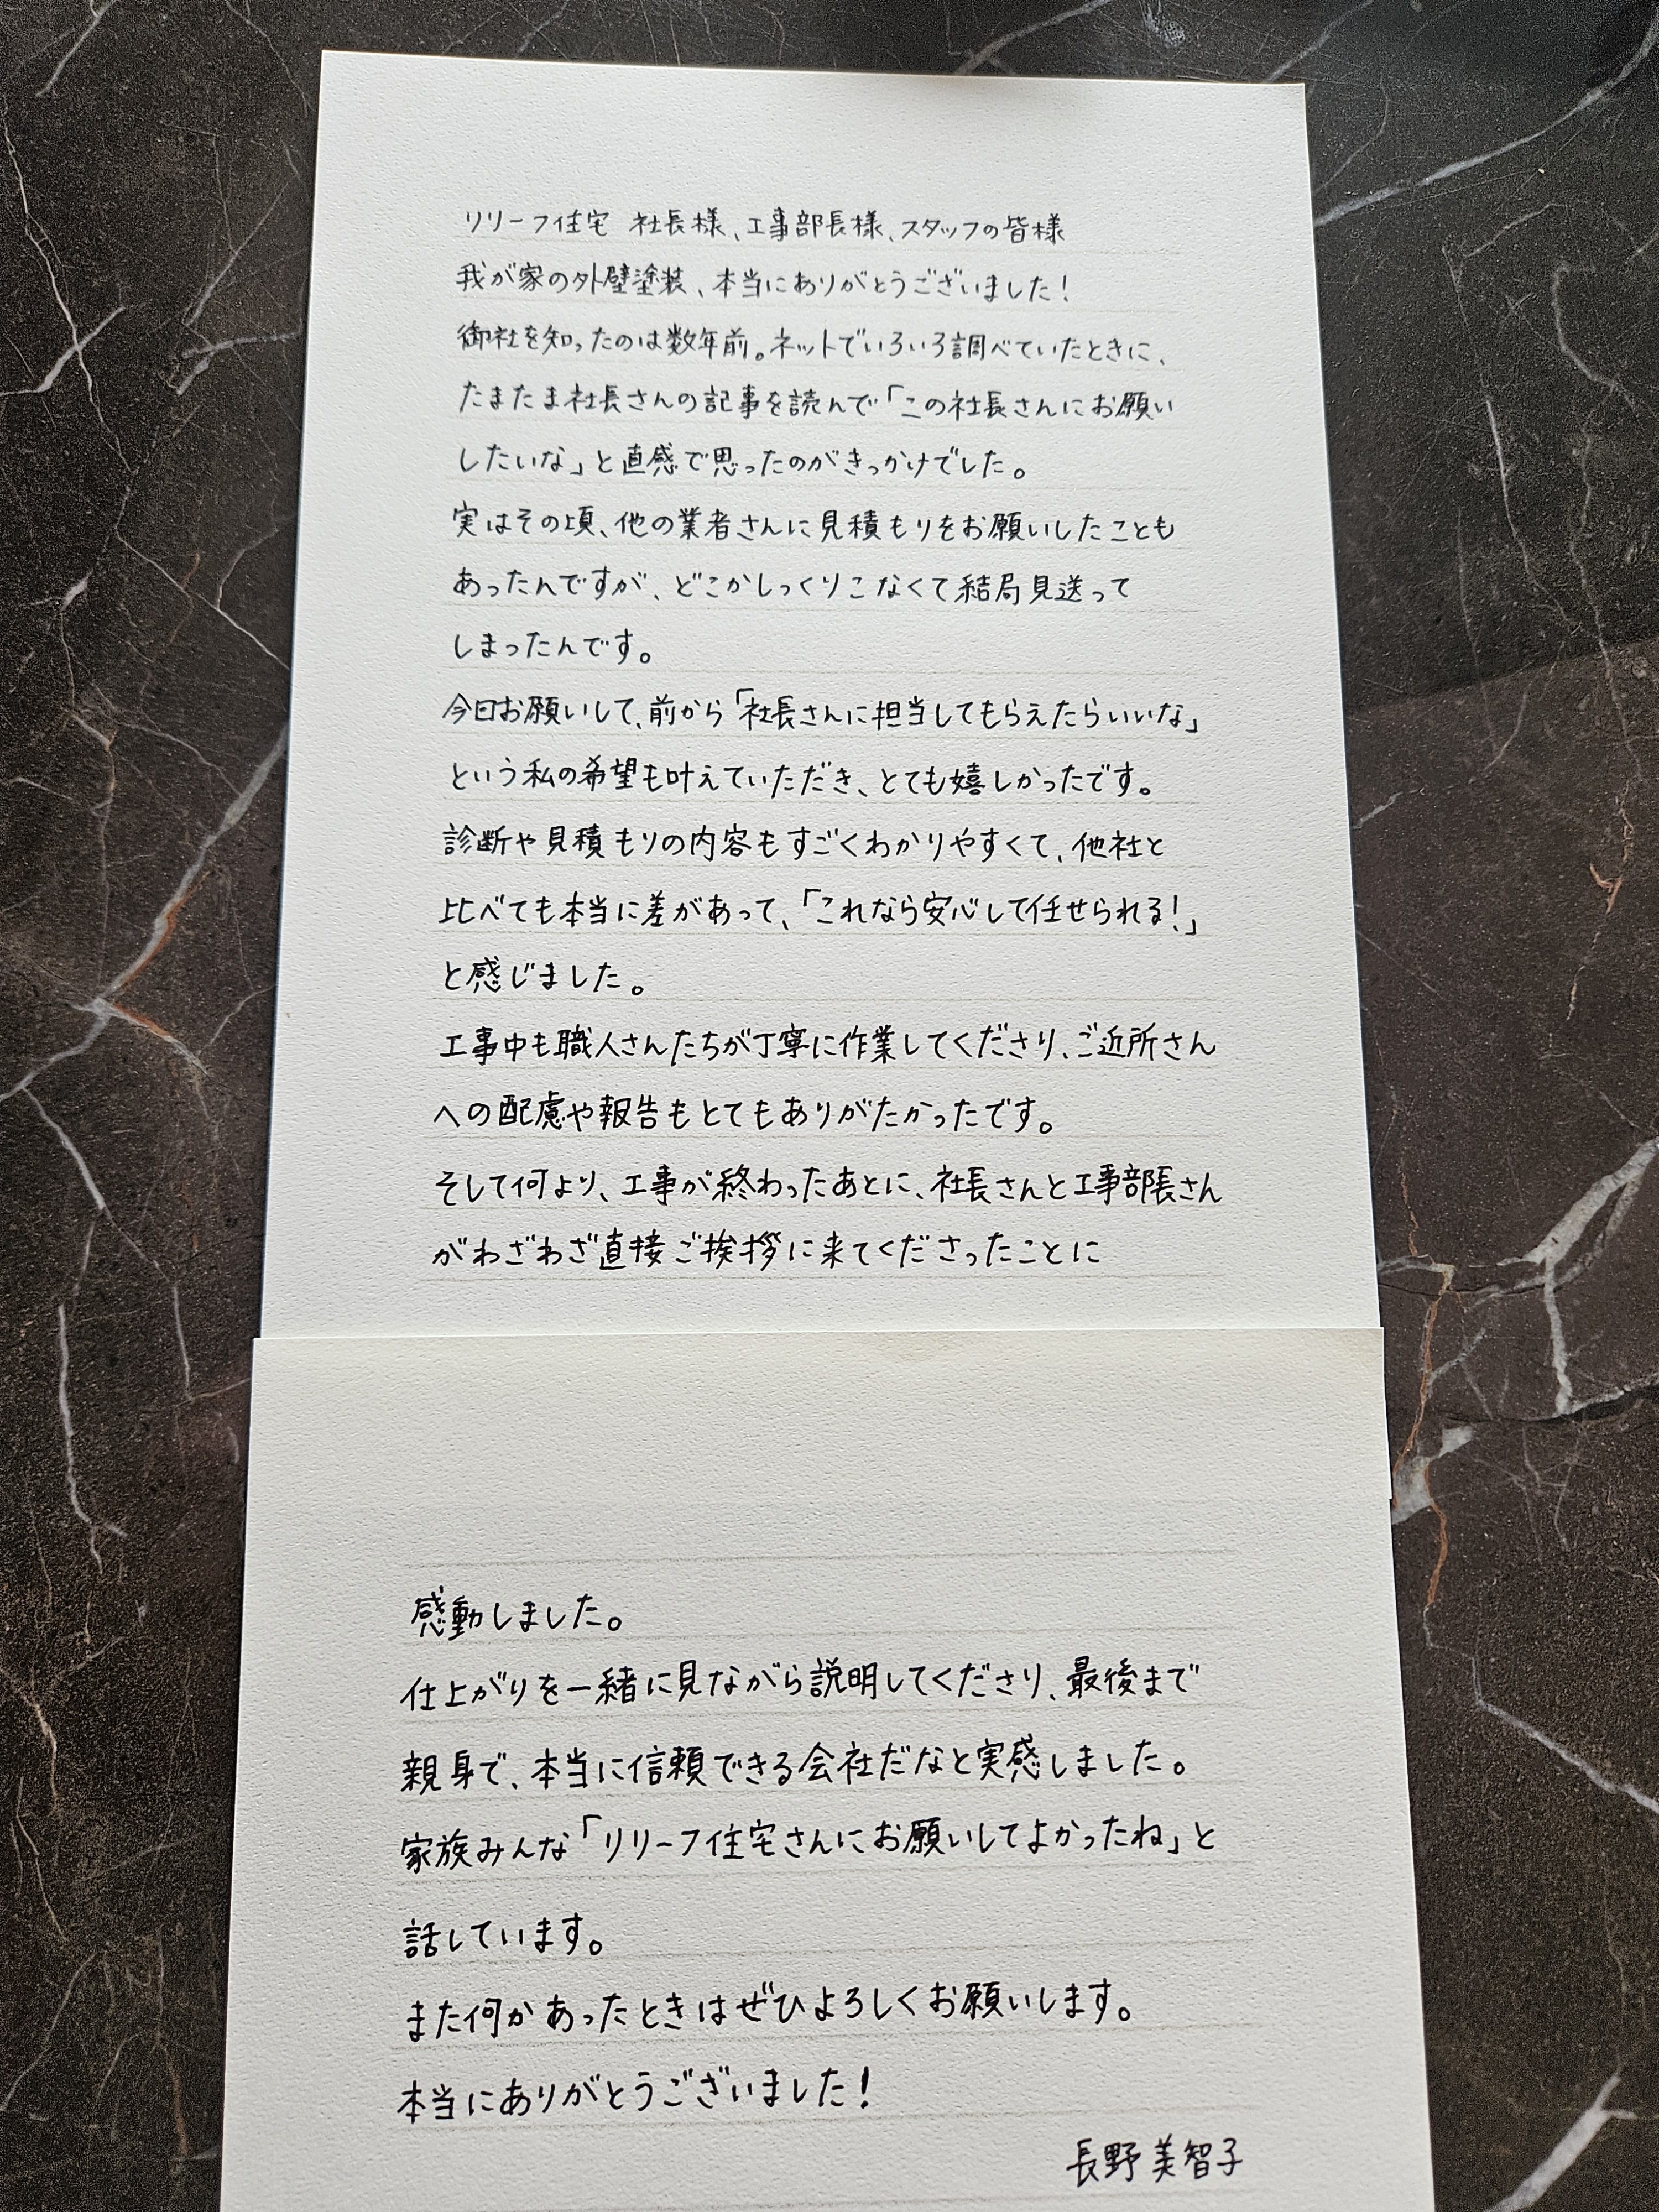 リリーフ住宅 社長様、工事部長様、スタッフの皆様
我が家の外壁塗装、本当にありがとうございました！
御社を知ったのは数年前。ネットでいろいろ調べていたときに、
たまたま社長さんの記事を読んで「この社長さんにお願い
したいな」と直感で思ったのがきっかけでした。
実はその頃、他の業者さんに見積もりをお願いしたことも
あったんですが、どこかしっくりこなくて結局見送って
しまったんです。
今日お願いして、前から「社長さんに担当してもらえたらいいな」
という私の希望も叶えていただき、とても嬉しかったです。
診断や見積もりの内容もすごくわかりやすくて、他社と
比べても本当に差があって、「これなら安心して任せられる！」
と感じました。
工事中も職人さんたちが丁寧に作業してくださり、ご近所さん
への配慮や報告もとてもありがたかったです。
そして何より、工事が終わったあとに、社長さんと工事部長さん
がわざわざ直接ご挨拶に来てくださったことに
感動しました。
仕上がりを一緒に見ながら説明してくださり、最後まで
親身で、本当に信頼できる会社だなと実感しました。
家族みんな「リリーフ住宅さんにお願いしてよかったね」と
話しています。
また何かあったときはぜひよろしくお願いします。
本当にありがとうございました！
長野美智子